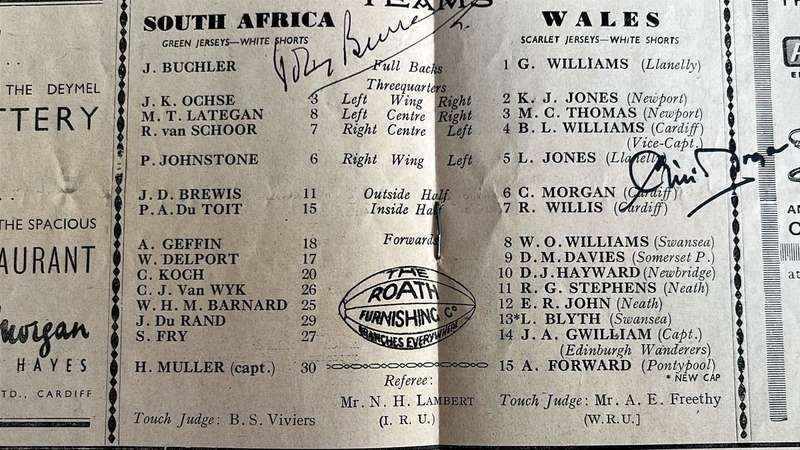 TEAMS
SOUTH AFRICA
GREEN JERSEYS—WHITE SHORTS
WALES
SCARLET JERSEYS—WHITE SHORTS
J. BUCHLER Full Backs 1 G. WILLIAMS (Llanelly)
Threequarters
J. K. OCHSE 3 Left Wing Right 2 K. J. JONES (Newport)
M. T. LATEGAN 8 Left Centre Right 3 M. C. THOMAS (Newport)
R. van SCHOOR 7 Right Centre Left 4 B. L. WILLIAMS (Cardiff)
(Vice-Capt.)
P. JOHNSTONE 6 Right Wing Left 5 L. JONES (Llanelly)
J. D. BREWIS 11 Outside Half 6 C. MORGAN (Cardiff)
P. A. Du TOIT 15 Inside Half 7 R. WILLIS (Cardiff)
Forwards
A. GEFFIN 18 8 W. O. WILLIAMS (Swansea)
W. DELPORT 17 9 D. M. DAVIES (Somerset P.)
C. KOCH 20 10 D. J. HAYWARD (Newbridge)
C. J. Van WYK 26 11 R. G. STEPHENS (Neath)
W. H. M. BARNARD 25 12 E. R. JOHN (Neath)
J. Du RAND 29 13*L. BLYTH (Swansea)
S. FRY 27 14 J. A. GWILLIAM (Capt.)
(Edinburgh Wanderers)
H. MULLER (capt.) 30 15 A. FORWARD (Pontypool)
* NEW CAP
THE
ROATH
FURNISHING Co
BRANCHES EVERYWHERE
Referee:
Mr. N. H. LAMBERT
(I. R. U.)
Touch Judge: B. S. Viviers
Touch Judge: Mr. A. E. Freethy
(W.R.U.]
THE DEYMEL
TTERY
THE SPACIOUS
AURANT
morgan
HAYES
TD., CARDIFF